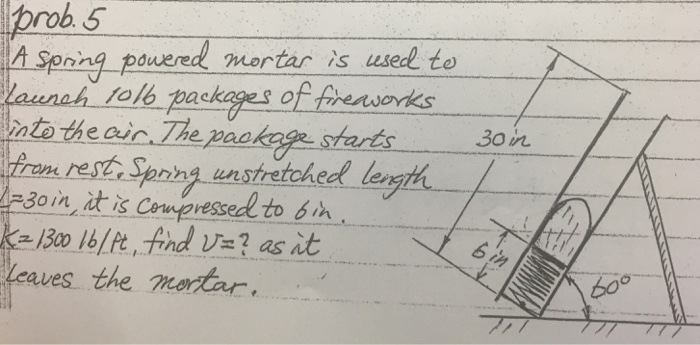 prob. 5
A spring powered mortar is used to
Launch 10lb packages of fireworks
into the air. The package starts
from rest. Spring unstretched length
L=30in, it is compressed to 6in.
K=1300 lb/ft, find V=? as it
Leaves the mortar.
30in
6in
60°